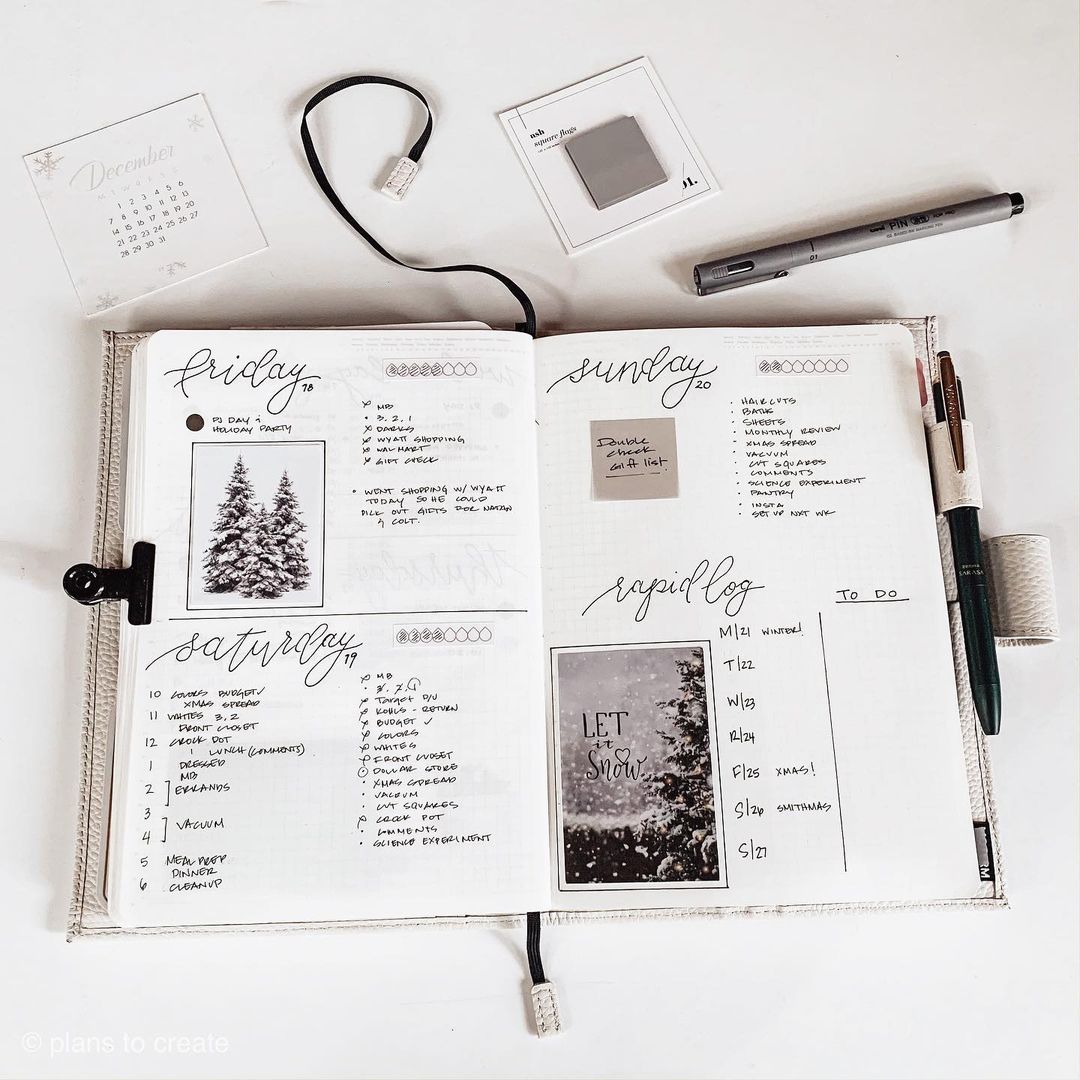 December
1 2 3 4 5 6
7 8 9 10 11 12 13
14 15 16 17 18 19 20
21 22 23 24 25 26 27
28 29 30 31
nsh
square flags
01.
uni PIN
01
friday
18
PJ DAY &
HOLIDAY PARTY
MB
3, 2, 1
DARKS
WYATT SHOPPING
WALMART
GIFT CHECK
WENT SHOPPING W/ WYATT
TODAY SO HE COULD
PICK OUT GIFTS FOR NATHAN
& COLT.
saturday
19
10 COLORS BUDGET ✓
XMAS SPREAD
11 WHITES 3, 2
FRONT CLOSET
12 CROCK POT
LUNCH (COMMENTS)
1 DRESSED
MB
2 ERRANDS
3
VACUUM
4
5 MEAL PREP
DINNER
6 CLEANUP
MB
3, 2,
Target D/U
KOHLS - RETURN
BUDGET ✓
COLORS
WHITES
FRONT CLOSET
DOLLAR STORE
XMAS SPREAD
VACUUM
CUT SQUARES
CROCK POT
COMMENTS
SCIENCE EXPERIMENT
sunday
20
Double
check
Gift list.
HAIRCUTS
BATHS
SHEETS
MONTHLY REVIEW
XMAS SPREAD
VACUUM
CUT SQUARES
COMMENTS
SCIENCE EXPERIMENT
PANTRY
INSTA
SET UP NXT WK
rapid log
TO DO
M/21 WINTER!
T/22
W/23
R/24
F/25 XMAS!
S/26 SMITHMAS
S/27
LET
it
Snow
SARASA
M
© plans to create